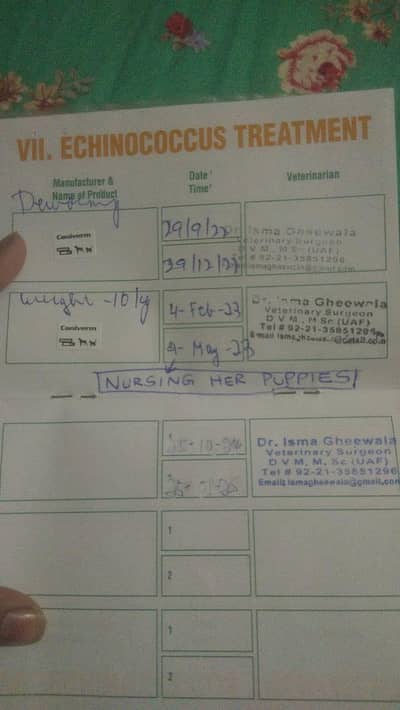 VII. ECHINOCOCCUS TREATMENT
Manufacturer & Name of Product
Date Time
Veterinarian
Deworming
Caniverm
29/9/22
29/12/22
Dr. Isma Gheewala
Veterinary Surgeon
D V M., M. Sc (UAF)
Tel # 92-21-35851296
Weight - 10 kg
Caniverm
4-Feb-23
4-May-23
Dr. Isma Gheewala
Veterinary Surgeon
D V M., M. Sc (UAF)
Tel # 92-21-35851296
NURSING HER PUPPIES
25-10-24
Dr. Isma Gheewala
Veterinary Surgeon
D V M, M. Sc (UAF)
Tel # 92-21-35851296
Email: ismagheewala@gmail.com
1
2
1
2